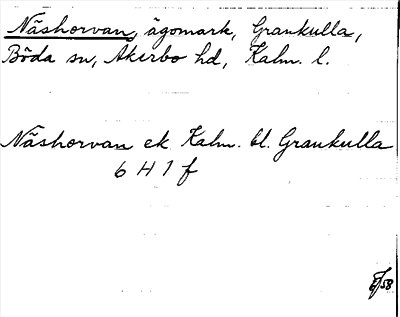 Näshorvan, ägomark, Grankulla,
Böda sn, Åkerbo hd, Kalm. l.
Näshorvan ek. Kalm. bl. Grankulla
6 H 1 f